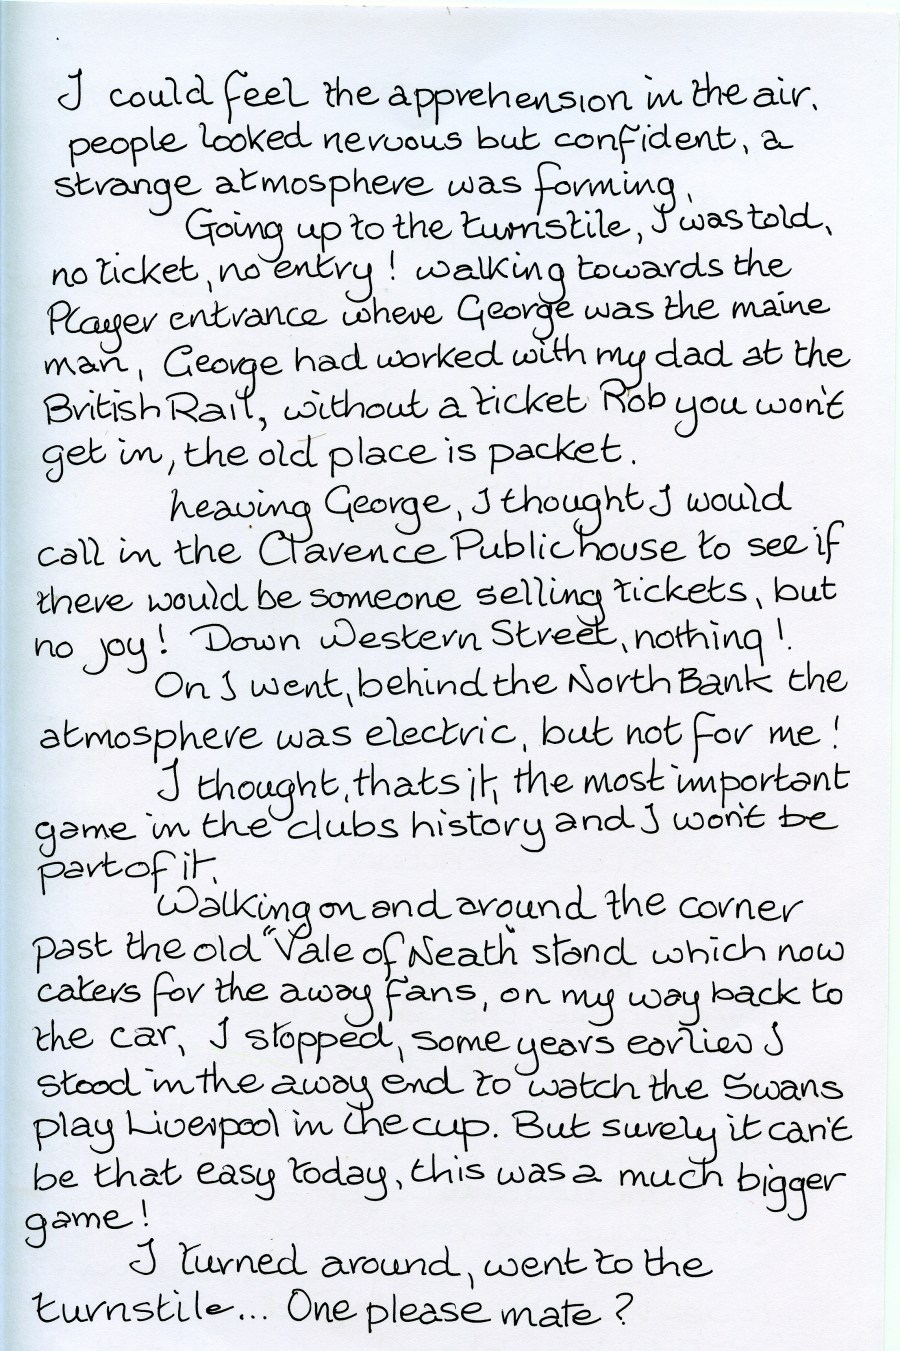 I could feel the apprehension in the air,
people looked nervous but confident, a
strange atmosphere was forming,
Going up to the turnstile, I was told,
no ticket, no entry! walking towards the
Player entrance where George was the maine
man, George had worked with my dad at the
British Rail, without a ticket Rob you won't
get in, the old place is packet.
heaving George, I thought I would
call in the Clarence Public house to see if
there would be someone selling tickets, but
no joy! Down Western Street, nothing!
On I went, behind the North Bank the
atmosphere was electric, but not for me!
I thought, thats it, the most important
game in the clubs history and I won't be
part of it,
Walking on and around the corner
past the old "Vale of Neath" stand which now
caters for the away fans, on my way back to
the car, I stopped, some years earlier I
stood in the away end to watch the Swans
play Liverpool in the cup. But surely it can't
be that easy today, this was a much bigger
game!
I turned around, went to the
turnstile... One please mate?